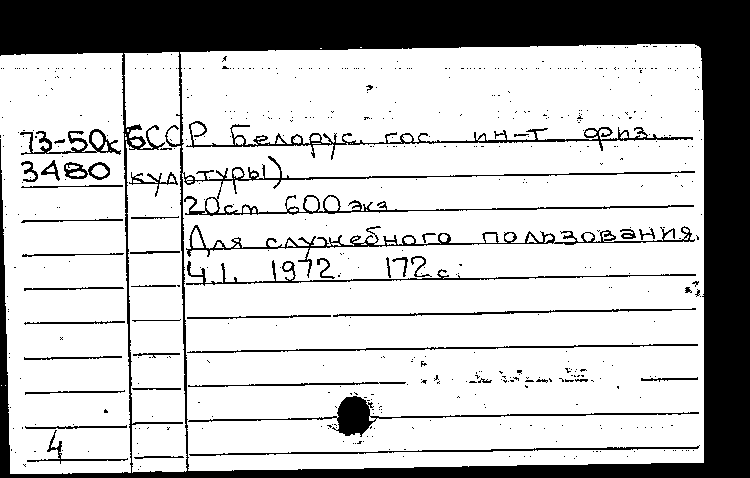 73-50к БССР. Беларус. гос. ин-т физ.
3480 культуры).
20см 600 экз.
Для служебного пользования.
Ч.1. 1972. 172с.
4